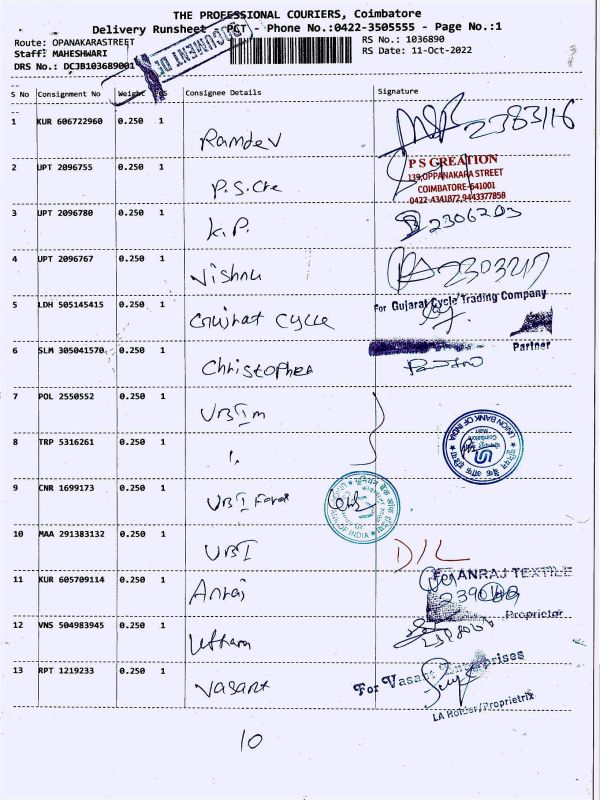 THE PROFESSIONAL COURIERS, Coimbatore
Delivery Runsheet - PCT - Phone No.:0422-3505555 - Page No.:1
Route: OPANAKARASTREET
RS No.: 1036890
Staff: MAHESHWARI
RS Date: 11-Oct-2022
DRS No.: DCJB103689001
DOCUMENT DE
S No Consignment No Weight PCS Consignee Details Signature
1 KUR 606722960 0.250 1 Ramdev 2383116
2 UPT 2096755 0.250 1 P.S.Cre
P S CREATION
139,OPPANAKARA STREET
COIMBATORE-641001
0422-4341872,9443377858
3 UPT 2096780 0.250 1 K.P. 2306203
4 UPT 2096767 0.250 1 Vishnu
5 LDH 505145415 0.250 1 Gujrat Cycle
For Gujarat Cycle Trading Company
Partner
6 SLM 305041570 0.250 1 Christopher
7 POL 2550552 0.250 1 UBI m
8 TRP 5316261 0.250 1
UNION BANK OF INDIA
9 CNR 1699173 0.250 1 UBI
OF INDIA
10 MAA 291383132 0.250 1 UBI D/L
11 KUR 605709114 0.250 1 Anraj
For ANRAJ TEXTILE
Proprietor
12 VNS 504983945 0.250 1 Uttam
13 RPT 1219233 0.250 1 Vasant
For Vasant Enterprises
LA Holder/Proprietrix
10